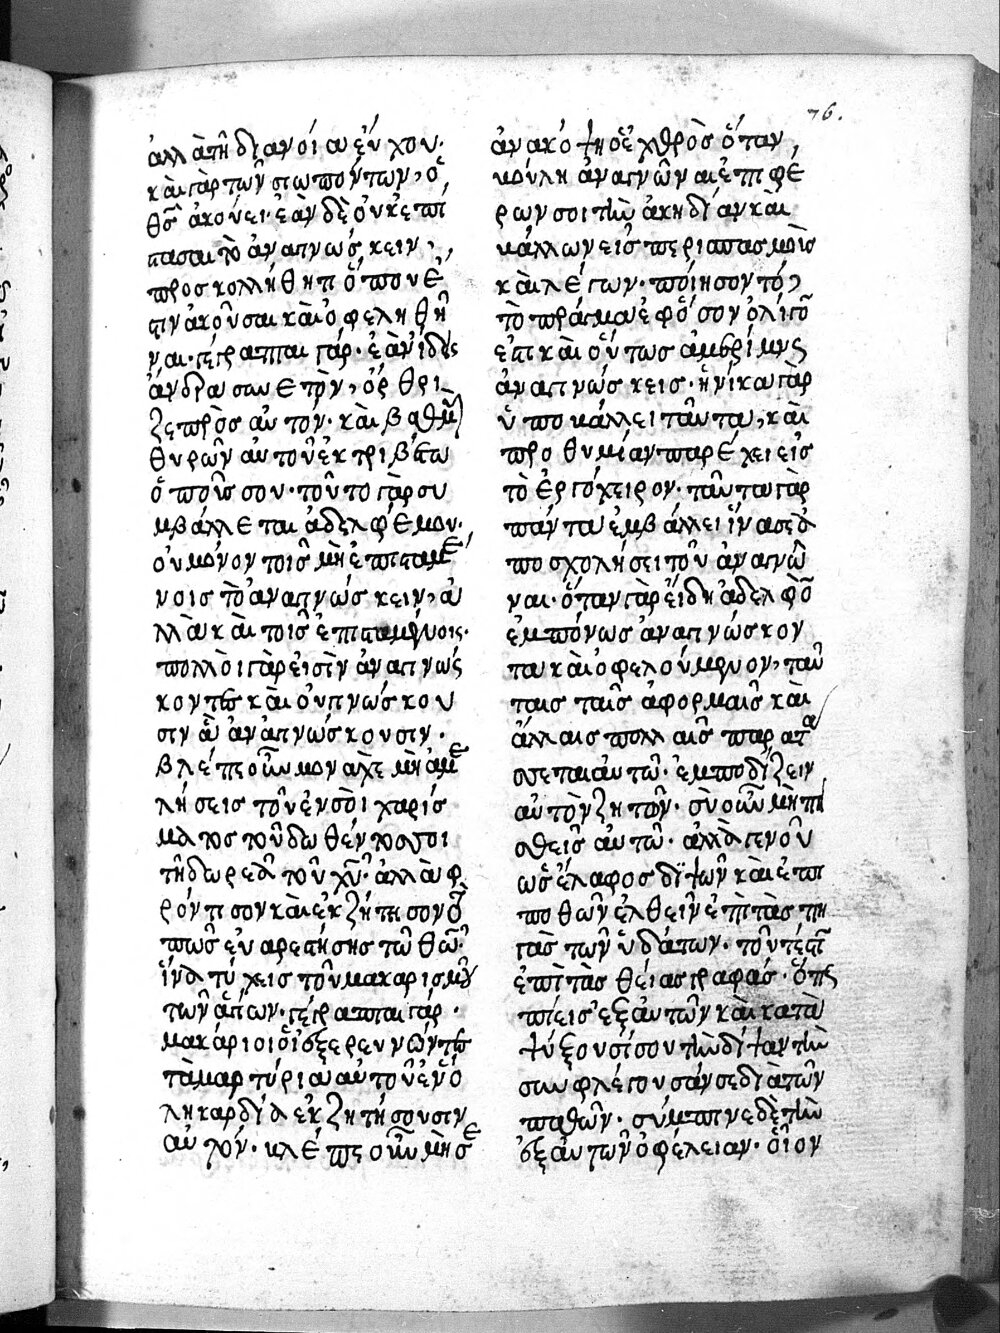 76.
ἀλλὰ τῆ διανοία εὔχου·
καὶ γὰρ τῶν σιωπούντων, ὁ
θ̅ς̅ ἀκούει· ἐὰν δὲ οὐκ ἐπί
στασαι τὸ ἀναγινώσκειν,
προσκολλήθητι ὅπου ἔ
στιν ἀκοῦσαι καὶ ὀφεληθῆ
ναι· γέγραπται γάρ· ἐὰν ἴδῃς
ἄνδρα συνετὸν, ὄρθρι
ζε πρὸς αὐτόν· καὶ βαθμοὺς
θυρῶν αὐτοῦ ἐκτριβέτω
ὁ πούς σου· τοῦτο γὰρ συ
μβάλλεται ἀδελφέ μου·
οὐ μόνον τοῖς μὴ ἐπισταμέ
νοις τὸ ἀναγινώσκειν, ἀ
λλὰ καὶ τοῖς ἐπισταμένοις·
πολλοὶ γὰρ εἰσὶν ἀναγινώσ
κοντες καὶ οὐ γινώσκου
σιν ἃ ἀναγινώσκουσιν·
βλέπε οὖν μοναχὲ μὴ ἀμε
λήσεις τοῦ ἐν σοὶ χαρίσ
ματος τοῦ δωθέντος σοι
τῆ δωρεᾶ τοῦ χ̅υ̅· ἀλλὰ φ
ρόντισον καὶ ἐκζήτησον
πῶς εὐαρεστήσῃς τῶ θ̅ω̅·
ἵνα τύχεις τοῦ μακαρισμοῦ
τῶν ἁγίων· γέγραπται γάρ·
μακάριοι οἱ ἐξερευνῶντες
τὰ μαρτύρια αὐτοῦ ἐν ὅ
λη καρδία ἐκζητήσουσιν
αὐτόν· βλέπε οὖν μὴ σε
ἀνακόψη ὁ ἐχθρὸς ὅταν
βούλη ἀναγνῶναι ἐπιφέ
ρων σοι τὴν ἀκηδίαν καὶ
βάλλων εἰς περισπασμοὺς
καὶ λέγων· ποίησον τό,
τὸ πρᾶγμα ἐφ' ὅσον ὀλίγον
ἐστὶ καὶ οὕτως ἀμερίμνως
ἀναγινώσκεις· ἡνίκα γὰρ
ὑποβάλλει ταῦτα, καὶ
προθυμίαν παρέχει εἰς
τὸ ἐργόχειρον· ταῦτα γὰρ
πάντα ἐμβάλλει ἵνα σε ἀ
ποσχολήσει τοῦ ἀναγνῶ
ναι· ὅταν γὰρ εἴδη ἀδελφὸν
ἐμπόνως ἀναγινώσκον
τα καὶ ὀφελούμενον, ταύ
ταις ταῖς ἀφορμαῖς καὶ
ἄλλαις πολλαῖς παρατάσ
σεται αὐτῶ· ἐμποδίζειν
αὐτὸν ζητῶν· σὺ οὖν μὴ πι
σθεὶς αὐτῶ· ἀλλὰ γενοῦ
ὡς ἔλαφος διψῶν καὶ ἐπι
ποθῶν ἐλθεῖν ἐπὶ τὰς πη
γὰς τῶν ὑδάτων· τουτέστι
ἐπὶ τὰς θείας γραφάς· ὅπως
πίεις ἐξ αὐτῶν καὶ κατα
ψύξουσί σου τὴν δίψαν τὴν
συμφλέγουσάν σε διὰ τῶν
παθῶν· σύμπινε δὲ τὴν
ἐξ αὐτῶν ὀφέλειαν· οἷον